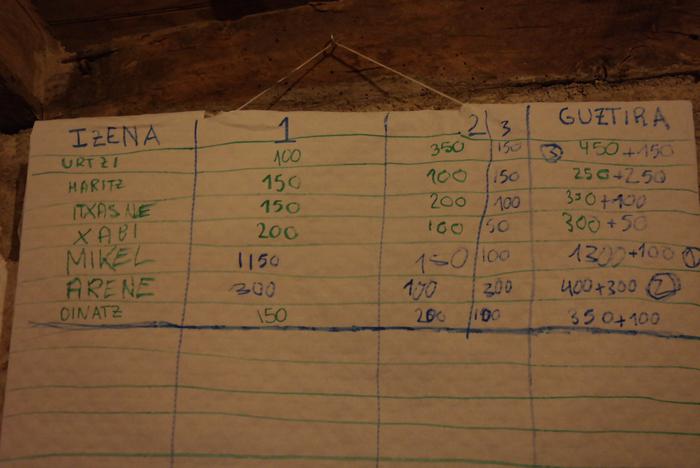 IZENA 1 2 3 GUZTIRA
URTZI 100 350 150 3 450+150
HARITZ 150 100 150 250+250
ITXASNE 150 200 100 350+100
XABI 200 100 50 300+50
MIKEL 1150 150 100 1300+100 1
ARENE 300 100 300 400+300 2
OINATZ 150 200 100 350+100